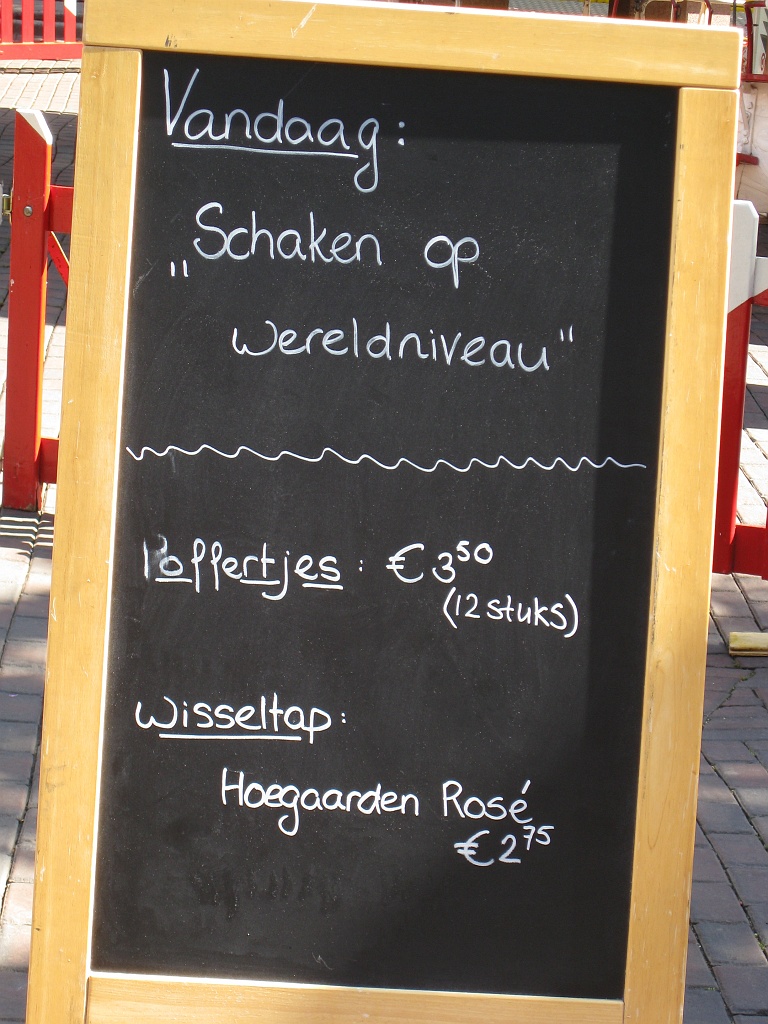 Vandaag:
„Schaken op
wereldniveau"
Poffertjes: €3⁵⁰
(12 stuks)
Wisseltap:
Hoegaarden Rosé
€2⁷⁵